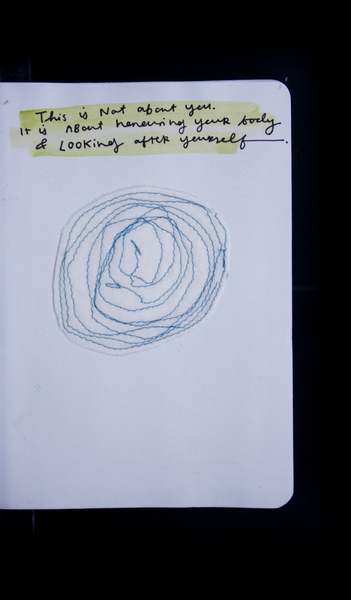 This is Not about you.
It is About honouring your body
& Looking after yourself.